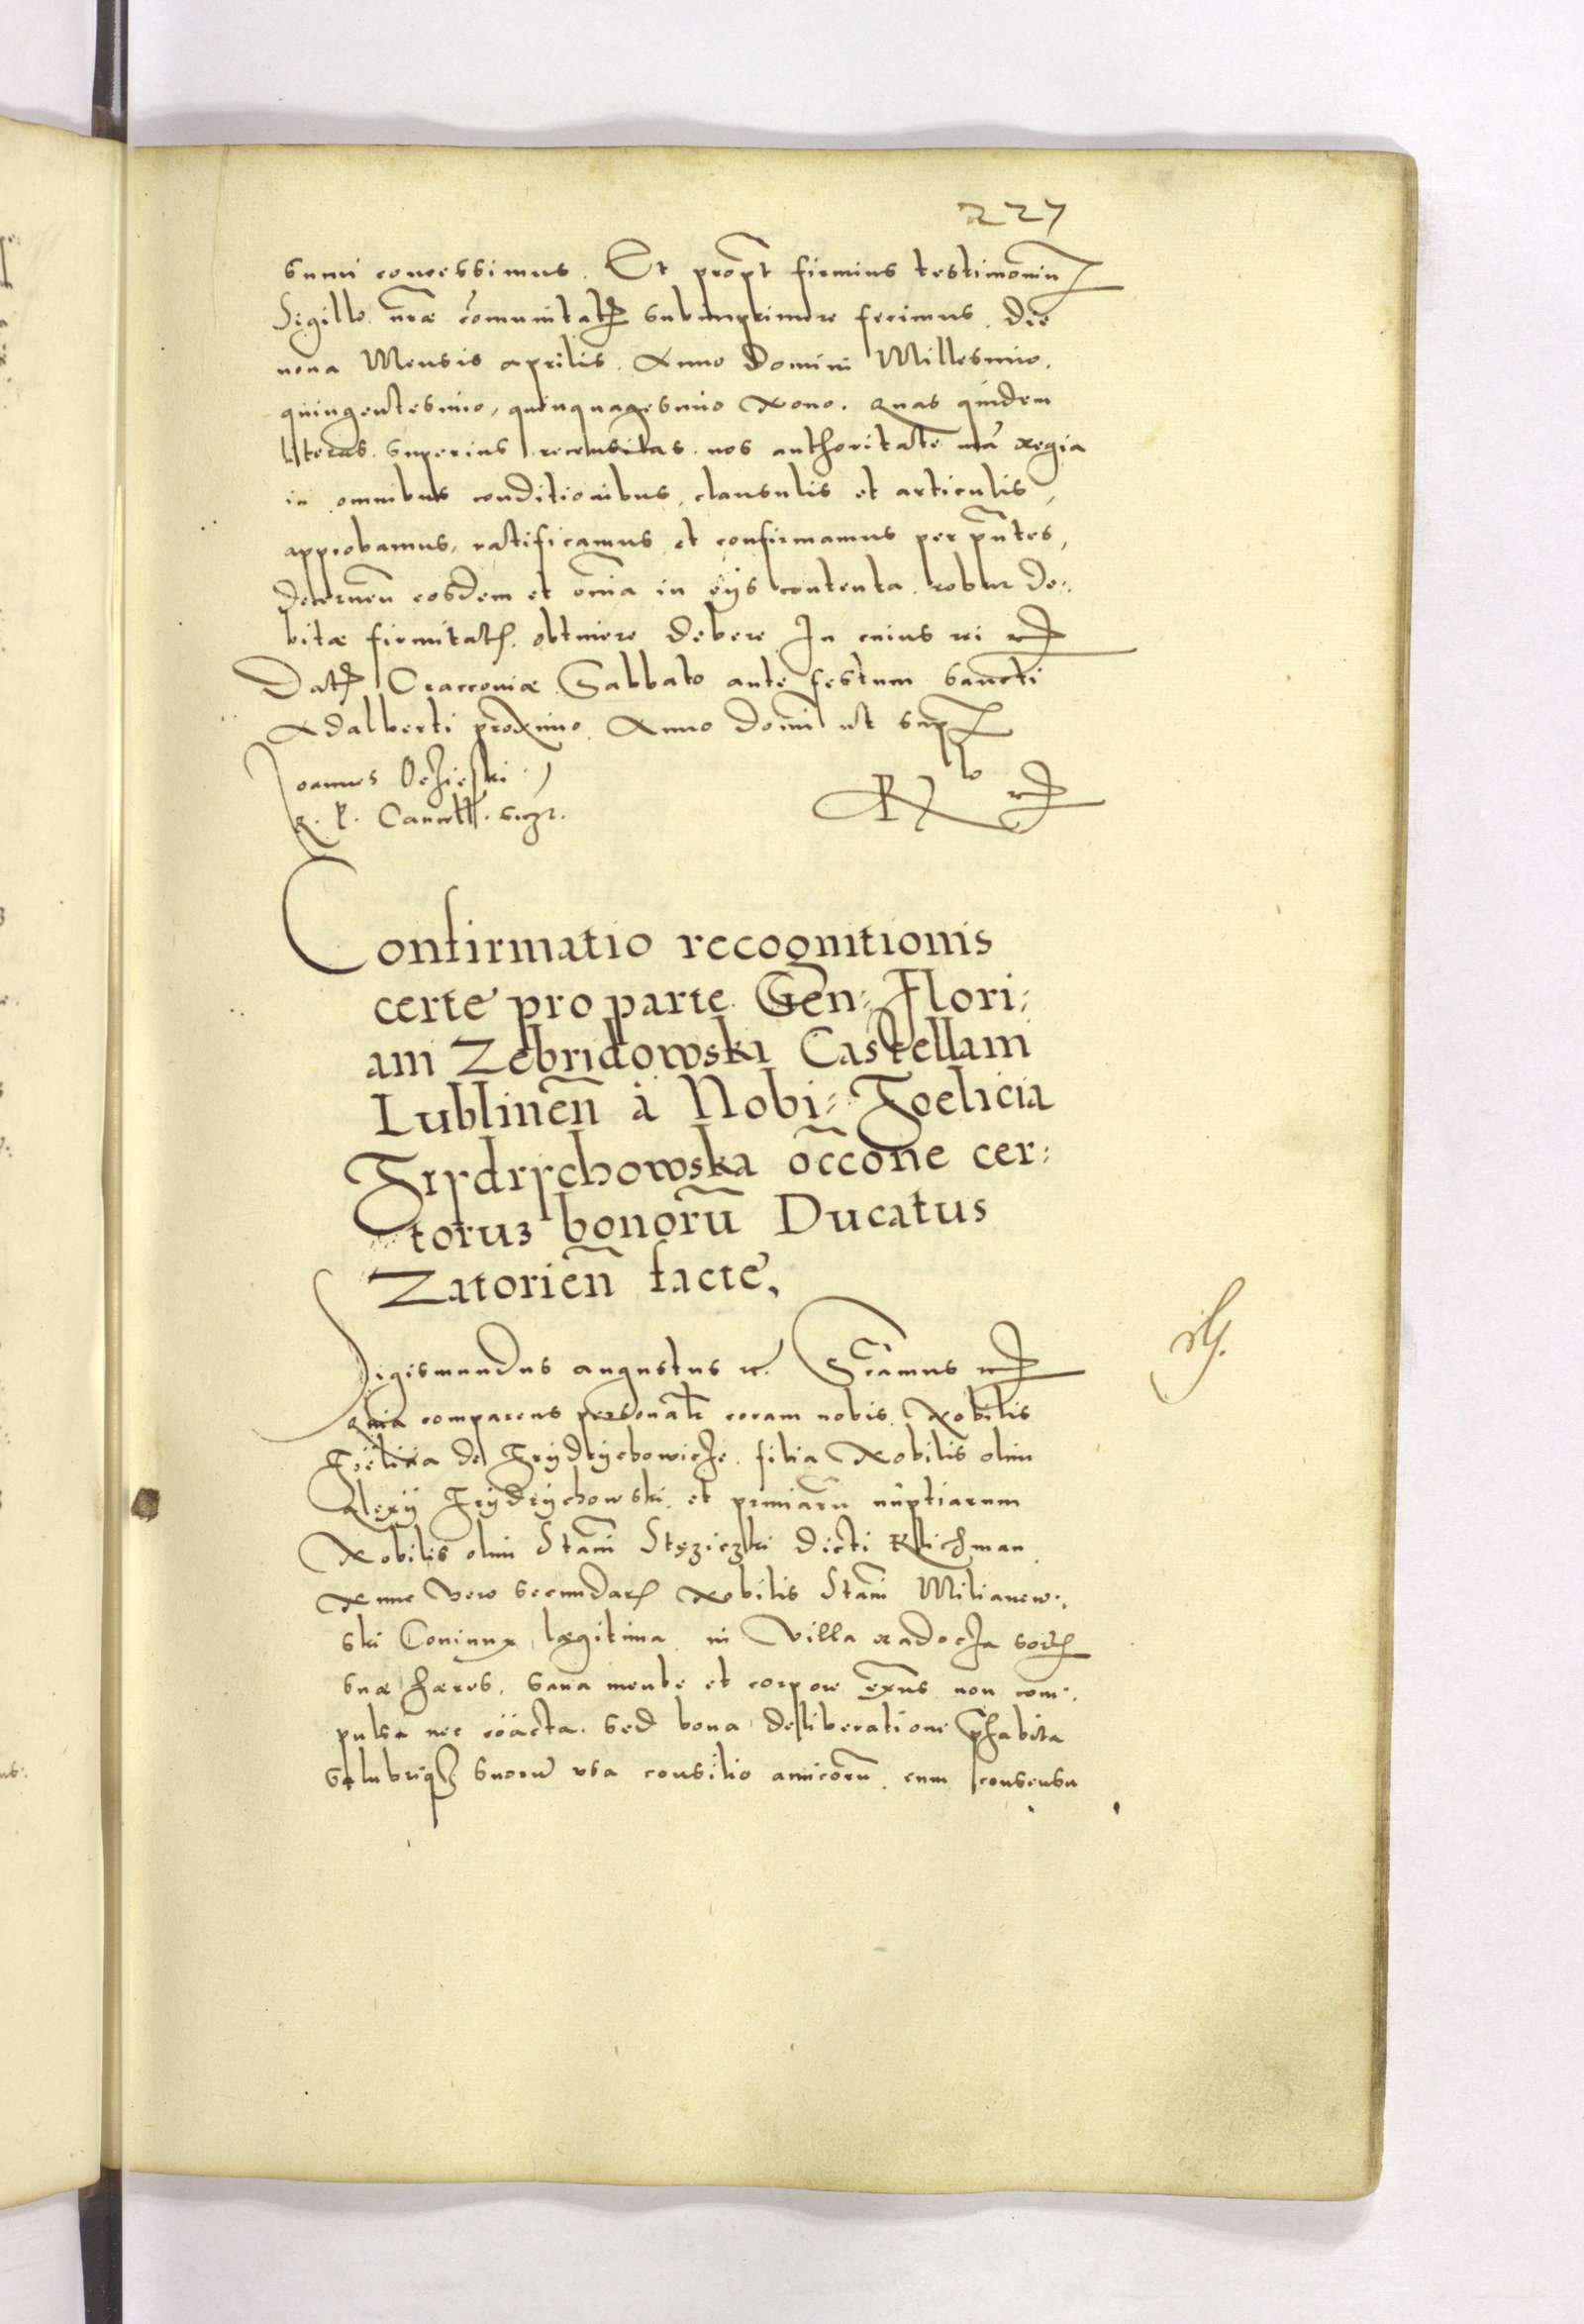 227
sumi concessimus. Et propt firmius testimoniu
Sigillo nr̃æ comunitat subimprimere fecimus. die
nona Mensis aprilis. Anno Domini Millesimo.
quingentesimo, quinquagesimo Nono. Quas quidem
literas superius recensitas. nos authoritate nr̃a Regia
in omnibus conditionibus, clausulis et articulis,
approbamus, ratificamus et confirmamus per pñtes,
decernen̄ eosdem et om̃ia in eijs contenta. robur de:
bitæ firmitat. obtinere debere In cuius rei
Dat Cracoviæ Sabbato ante festum Sancti
Adalberti proximo. Anno domi ut sup
Joannes Oczieski
R. P. Cancell. sczr.
Confirmatio recognitionis
certe pro parte Gen: Flori:
ani Zebridowski Castellani
Lublinen̄ à Nobi: Foelicia
Frydrychowska occ̃one cer:
toruʒ bonorū Ducatus
Zatorien̄ facte,
Sigismundus augustus rc. Sccamus
Quia comparens personalr coram nobis. Nobilis
Fielixa de Frydrychowicze. filia Nobilis olim
Alexij Frydrychowski. et primiarū nuptiarum
Nobilis olim Stani Stęziczki dicti Klichman
Nunc Vero secundar Nobilis Stani Milianew:
ski Coniunx lægitima in Villa Radocza sort
suæ hæres, sana mente et corpore exn̄s non com:
pulsa nec coacta. sed bona deliberatione p̃habita
salubriqʒ suorū usa consilio amicorū. cum consensu